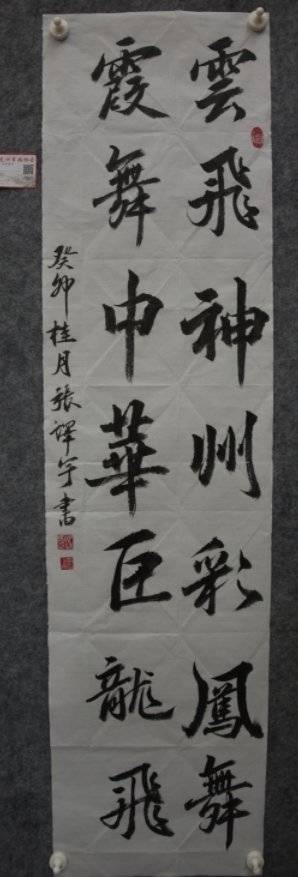 雲飛神州彩鳳舞
霞舞中華巨龍飛
癸卯桂月張譯宇書